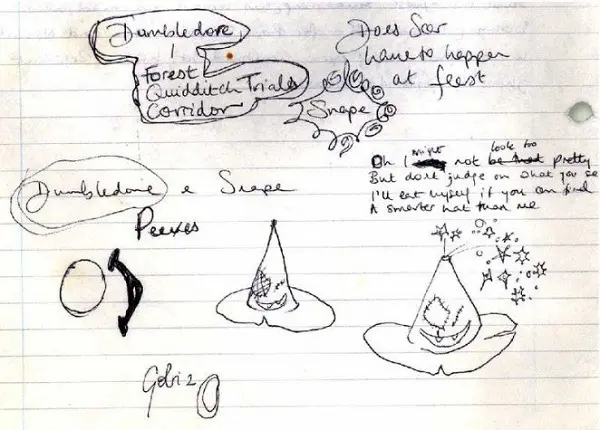 Dumbledore
Forest
Quidditch Trials
Corridor
Snape
Does Scar
have to happen
at feast
Dumbledore e Snape
Peeves
Oh I might not be look too pretty
But don't judge on what you see
I'll eat myself if you can find
A smarter hat than me